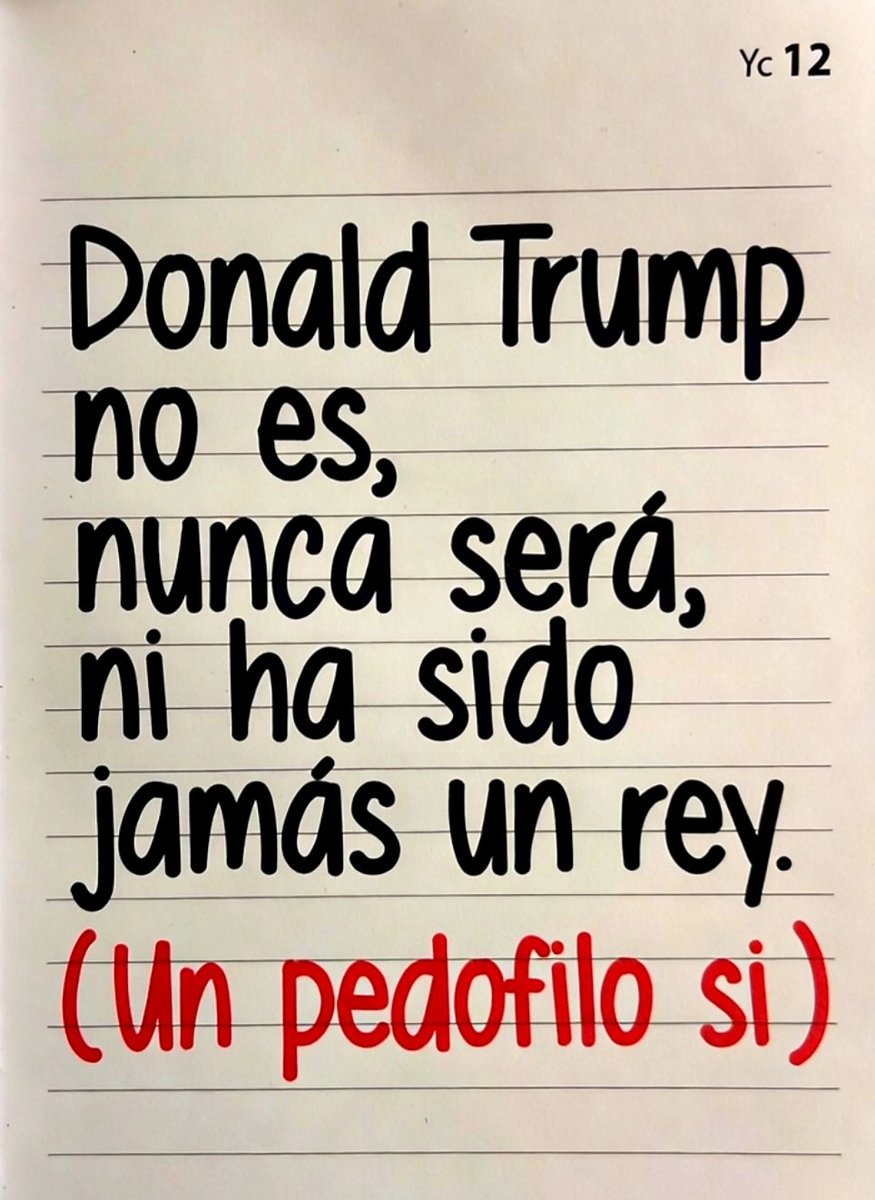 Yc 12
Donald Trump
no es,
nunca será,
ni ha sido
jamás un rey.
(Un pedofilo si)